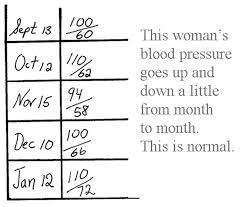 Sept 13 100/60
Oct 12 110/62
Nov 15 94/58
Dec 10 100/66
Jan 12 110/72
This woman's
blood pressure
goes up and
down a little
from month
to month.
This is normal.